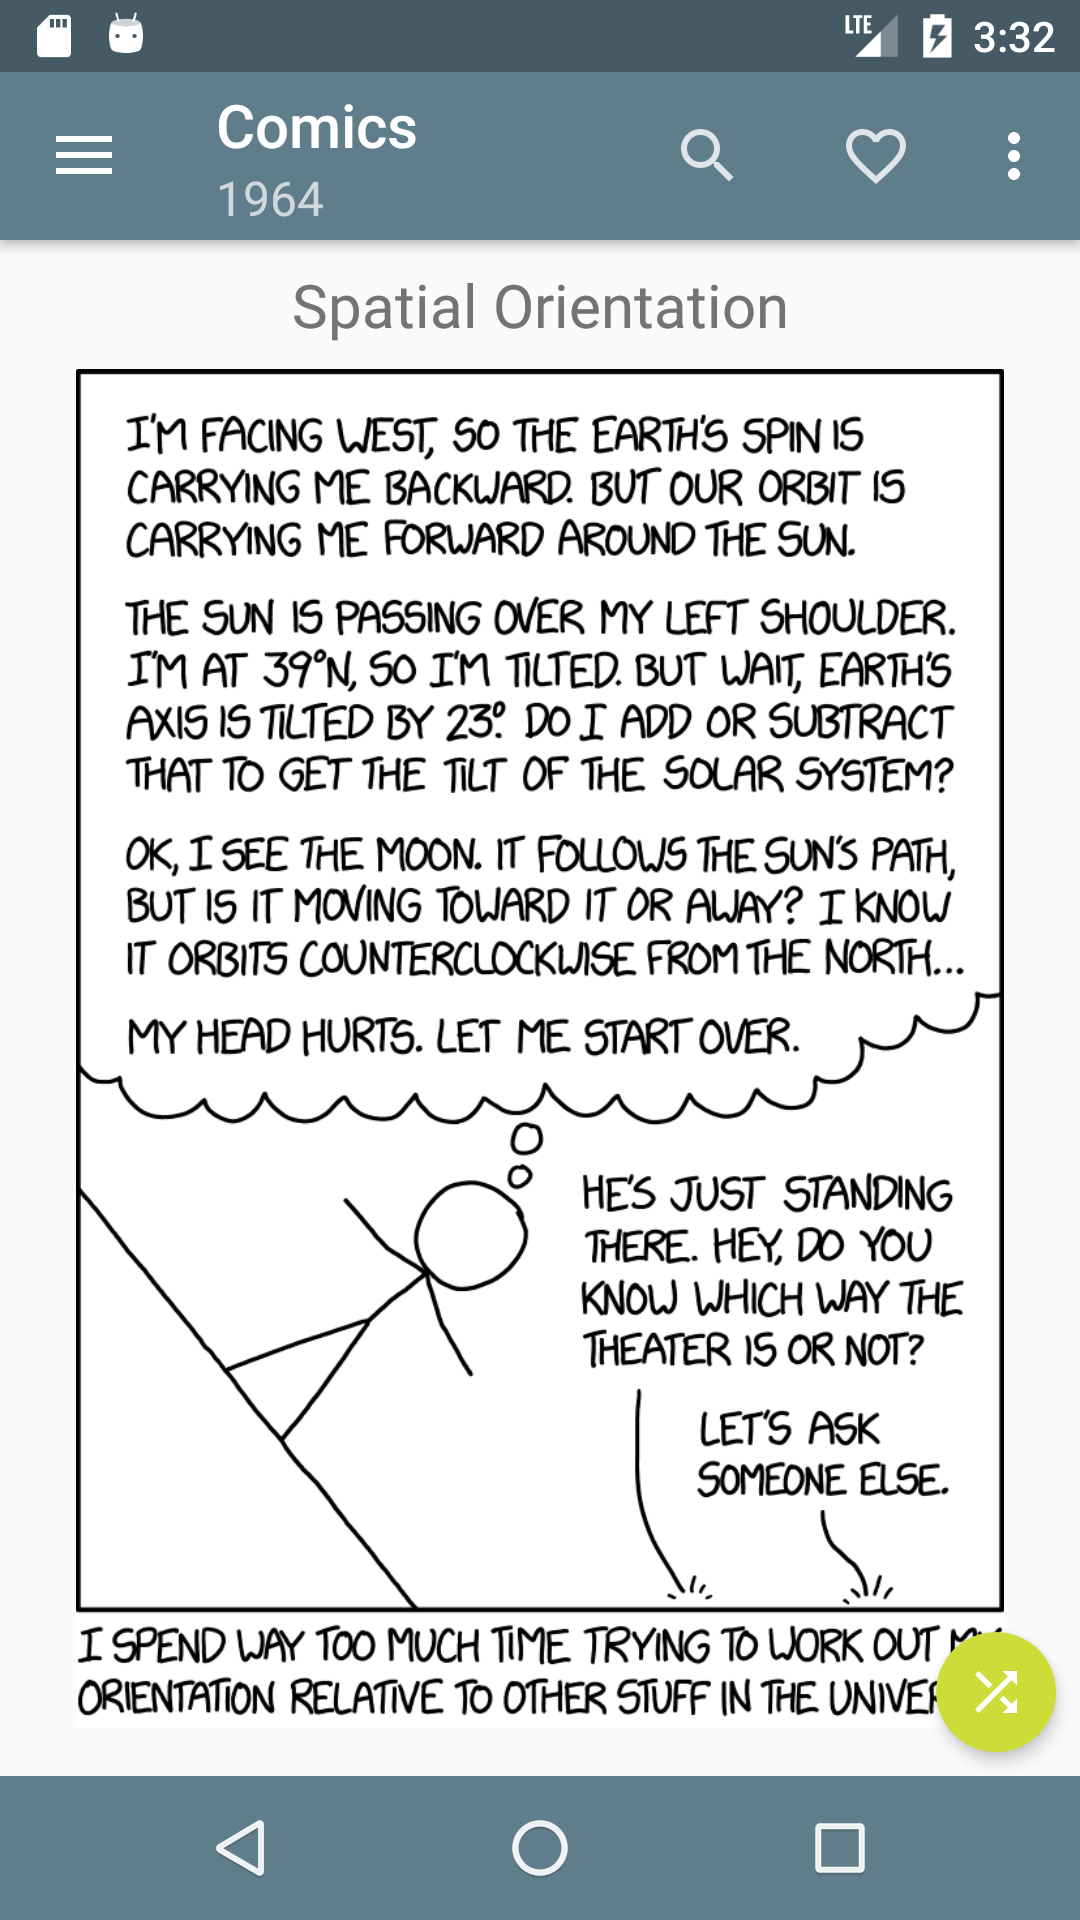 LTE 3:32
Comics
1964
Spatial Orientation
I'M FACING WEST, SO THE EARTH'S SPIN IS
CARRYING ME BACKWARD. BUT OUR ORBIT IS
CARRYING ME FORWARD AROUND THE SUN.
THE SUN IS PASSING OVER MY LEFT SHOULDER.
I'M AT 39°N, SO I'M TILTED. BUT WAIT, EARTH'S
AXIS IS TILTED BY 23°. DO I ADD OR SUBTRACT
THAT TO GET THE TILT OF THE SOLAR SYSTEM?
OK, I SEE THE MOON. IT FOLLOWS THE SUN'S PATH,
BUT IS IT MOVING TOWARD IT OR AWAY? I KNOW
IT ORBITS COUNTERCLOCKWISE FROM THE NORTH...
MY HEAD HURTS. LET ME START OVER.
HE'S JUST STANDING
THERE. HEY, DO YOU
KNOW WHICH WAY THE
THEATER IS OR NOT?
LET'S ASK
SOMEONE ELSE.
I SPEND WAY TOO MUCH TIME TRYING TO WORK OUT
ORIENTATION RELATIVE TO OTHER STUFF IN THE